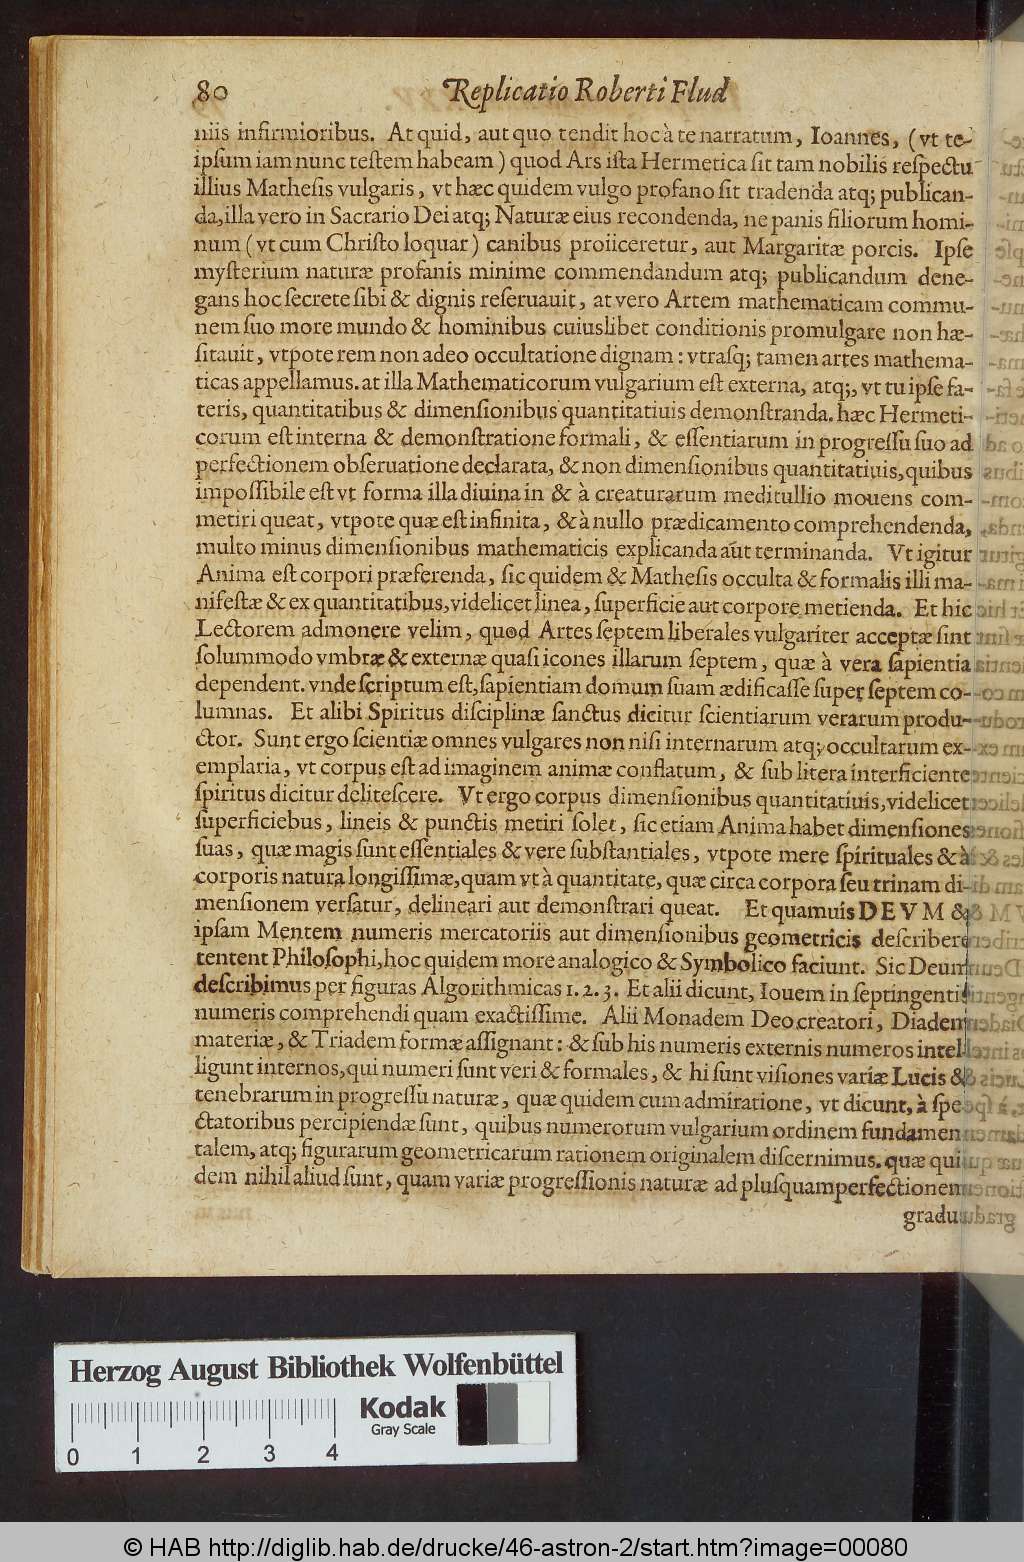 80 Replicatio Roberti Flud
niis infirmioribus. At quid, aut quo tendit hoc à te narratum, Ioannes, (vt te-
ipſum iam nunc teſtem habeam) quod Ars iſta Hermetica ſit tam nobilis reſpectu
illius Matheſis vulgaris, vt hæc quidem vulgo profano ſit tradenda atq; publican-
da, illa vero in Sacrario Dei atq; Naturæ eius recondenda, ne panis filiorum homi-
num (vt cum Chriſto loquar) canibus proiiceretur, aut Margaritæ porcis. Ipſe
myſterium naturæ profanis minime commendandum atq; publicandum dene-
gans hoc ſecrete ſibi & dignis reſeruauit, at vero Artem mathematicam commu-
nem ſuo more mundo & hominibus cuiuslibet conditionis promulgare non hæ-
ſitauit, vtpote rem non adeo occultatione dignam: vtraſq; tamen artes mathema-
ticas appellamus. at illa Mathematicorum vulgarium eſt externa, atq;, vt tu ipſe fa-
teris, quantitatibus & dimenſionibus quantitatiuis demonſtranda. hæc Hermeti-
corum eſt interna & demonſtratione formali, & eſſentiarum in progreſſu ſuo ad
perfectionem obſeruatione declarata, & non dimenſionibus quantitatiuis, quibus
impoſſibile eſt vt forma illa diuina in & à creaturarum meditullio mouens com-
metiri queat, vtpote quæ eſt infinita, & à nullo prædicamento comprehendenda,
multo minus dimenſionibus mathematicis explicanda aut terminanda. Vt igitur
Anima eſt corpori præferenda, ſic quidem & Matheſis occulta & formalis illi ma-
nifeſtæ & ex quantitatibus, videlicet linea, ſuperficie aut corpore metienda. Et hic
Lectorem admonere velim, quod Artes ſeptem liberales vulgariter acceptæ ſint
ſolummodo vmbræ & externæ quaſi icones illarum ſeptem, quæ à vera ſapientia
dependent. vnde ſcriptum eſt, ſapientiam domum ſuam ædificaſſe ſuper ſeptem co-
lumnas. Et alibi Spiritus diſciplinæ ſanctus dicitur ſcientiarum verarum produ-
ctor. Sunt ergo ſcientiæ omnes vulgares non niſi internarum atq; occultarum ex-
emplaria, vt corpus eſt ad imaginem animæ conflatum, & ſub litera interficiente
ſpiritus dicitur deliteſcere. Vt ergo corpus dimenſionibus quantitatiuis, videlicet
ſuperficiebus, lineis & punctis metiri ſolet, ſic etiam Anima habet dimenſiones
ſuas, quæ magis ſunt eſſentiales & vere ſubſtantiales, vtpote mere ſpirituales & à
corporis natura longiſſimæ, quam vt à quantitate, quæ circa corpora ſeu trinam di-
menſionem verſatur, delineari aut demonſtrari queat. Et quamuis DEVM &
ipſam Mentem numeris mercatoriis aut dimenſionibus geometricis deſcribere
tentent Philoſophi, hoc quidem more analogico & Symbolico faciunt. Sic Deum
deſcribimus per figuras Algorithmicas 1. 2. 3. Et alii dicunt, Iouem in ſeptingentis
numeris comprehendi quam exactiſſime. Alii Monadem Deo creatori, Diadem
materiæ, & Triadem formæ aſſignant: & ſub his numeris externis numeros intel-
ligunt internos, qui numeri ſunt veri & formales, & hi ſunt viſiones variæ Lucis &
tenebrarum in progreſſu naturæ, quæ quidem cum admiratione, vt dicunt, à ſpe
ctatoribus percipiendæ ſunt, quibus numerorum vulgarium ordinem fundamen
talem, atq; figurarum geometricarum rationem originalem diſcernimus. quæ qui
dem nihil aliud ſunt, quam variæ progreſſionis naturæ ad pluſquamperfectionem
gradu
Herzog August Bibliothek Wolfenbüttel
Kodak
Gray Scale
0 1 2 3 4
© HAB http://diglib.hab.de/drucke/46-astron-2/start.htm?image=00080